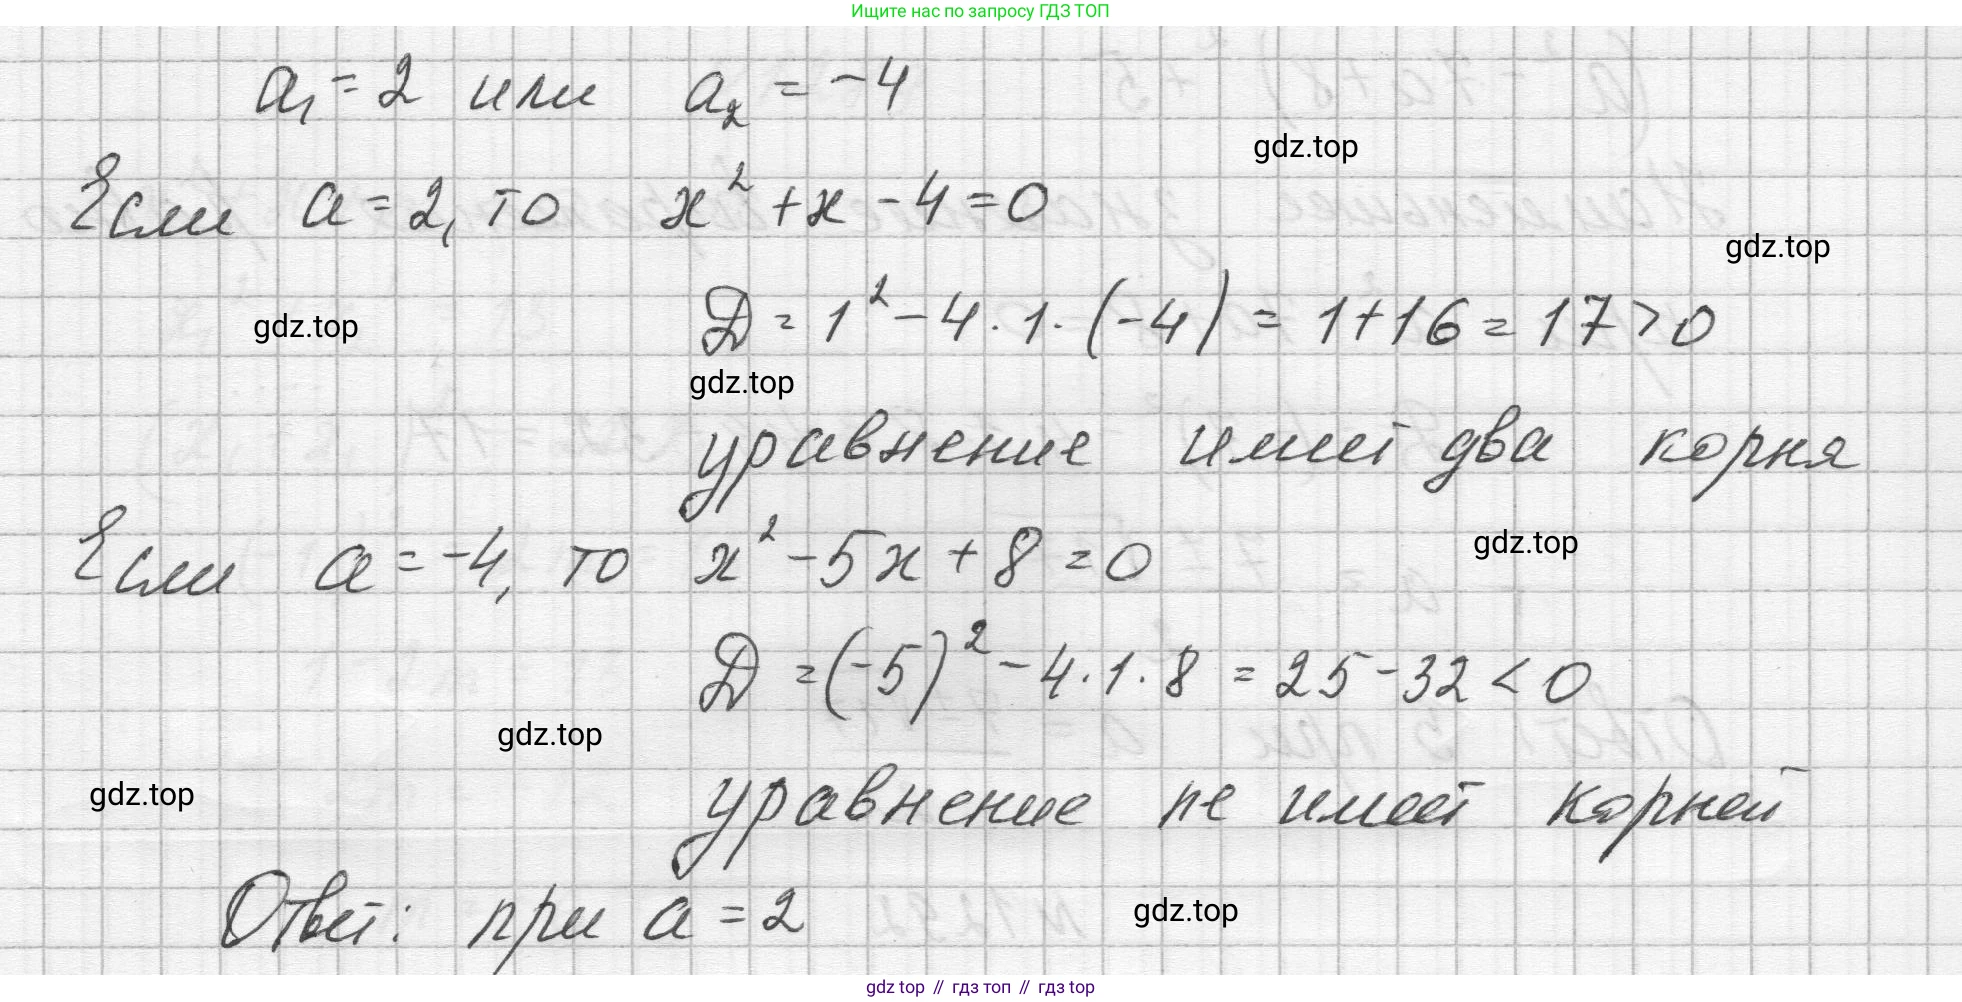 Ищите нас по запросу ГДЗ ТОП
a₁ = 2 или a₂ = -4
gdz.top
Если a = 2, то x² + x - 4 = 0
gdz.top
D = 1² - 4 · 1 · (-4) = 1 + 16 = 17 > 0
gdz.top
gdz.top
уравнение имеет два корня
Если a = -4, то x² - 5x + 8 = 0
gdz.top
D = (-5)² - 4 · 1 · 8 = 25 - 32 < 0
gdz.top
gdz.top
уравнение не имеет корней
Ответ: при a = 2
gdz.top
gdz top // гдз топ // gdz top